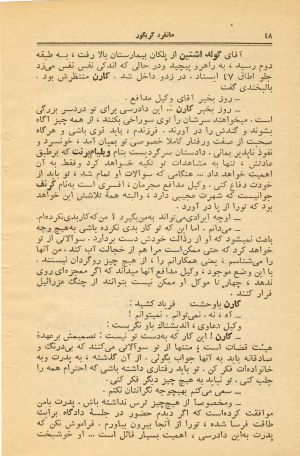 ۴۸
مانفرد گریگور
آقای گولد اشتین از پلکان بیمارستان بالا رفت ، به طبقه
دوم رسید ، به راهرو پیچید ودر حالی که اندکی نفس نفس میزد
جلو اطاق ۴۷ ایستاد . در زدو داخل شد . کارن منتظرش بود .
بالبخندی گفت
ـ روز بخیر آقای وکیل مدافع .
ـ روز بخیر کارن ... این دادرسی برای تو دردسر بزرگی
است . میخواهند سرشان را توی سوراخی بکنند ، از همه چیز آگاه
بشوند و گندش را در آورند . فرزندم ، باید قوی باشی و هرگاه
صحبت از صفت ورفتار کاملا خصوصی تو بمیان آمد ، خونسرد و
نفوذ ناپذیر بمانی . دادستان سرگردیست بنام ویلیامبرنت که برطبق
عادتش ، تنها به مشاهدات تو تکیه خواهد کرد وفقط به آن
اهمیت خواهد داد ... هنگامی که سوالات او تمام شد ، تو باید از
خودت دفاع کنی . وکیل مدافع مجرمان ، افسری است بهنام گرنف
جوانیست که شهرت عجیبی دارد ، والبته همهٔ تلاشش این خواهد
بود که تورا از پا در آورد .
ـ اوچه ایرادی میتواند بهمنبگیرد ؟ من که کاربدی نکردهام.
ـ می دانم . اما این که تو کار بدی نکرده باشی بهیچ وجه
باعث نمیشود که او از رذالت خودش دست بردارد . سوالاتی از تو
خواهد کرد که حتی ممکن است مرا هم از خجالت آب کند . من آنها
را می‌شناسم ، یعنی همکارانم را ، از هیچ چیز روگردان نیستند .
با این وضع موجود ، وکیل مدافع آنها میداند که اگر معجزه‌ای روی
ندهد ، چهار تا موکل او ممکن نیست بتوانند از چنگ عزرائیل
فرار کنند .
کارن باوحشت فریاد کشید :
ـ آه ، نه . نمی‌توانم . نمیتوانم !
وکیل دعاوی ، اندیشناك باو نگریست :
ـ کارن ! این کار که بهدست تو نیست : تصمیمش برعهدهٔ
هیئت قضات است ؛ منتها از تو سوالاتی می‌کنند که بی‌درنگ و
صادقانه باید به آنها جواب بگوئی . از آن گذشته ، به پدرت وبه
خانواده‌ات فکر کن . تو باید رفتاری داشته باشی که احترام همه را
جلب کنی . تو نباید به هیچ چیز دیگر فکر کنی .
ـ سعی می‌کنم بهیچوجه نگرانتان نکنم .
ـ ومخصوصا از هیچچیز ترس نداشته باش . پدرت بامن
موافقت کرده‌است که اگر دیدم حضور در جلسهٔ دادگاه برایت
طاقت فرسا شده ، تورا از آنجا بیرون بیاورم . فراموش نکن که
پدرت به‌این دادرسی ، اهمیت بسیار قائل است ... او خوشبخت